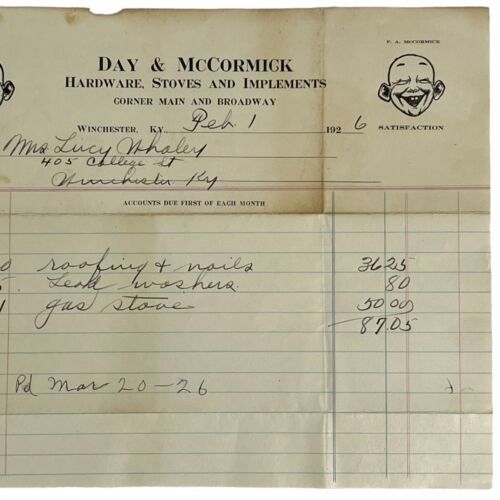 F. A. McCORMICK
DAY & McCORMICK
HARDWARE, STOVES AND IMPLEMENTS
CORNER MAIN AND BROADWAY
WINCHESTER, KY. Feb. 1 1926
SATISFACTION
Mrs Lucy Whaley
405 College St
Winchester Ky
ACCOUNTS DUE FIRST OF EACH MONTH
0 roofing & nails 3625
5 Lead washers 80
1 gas stove 5000
8705
Pd Mar 20-26